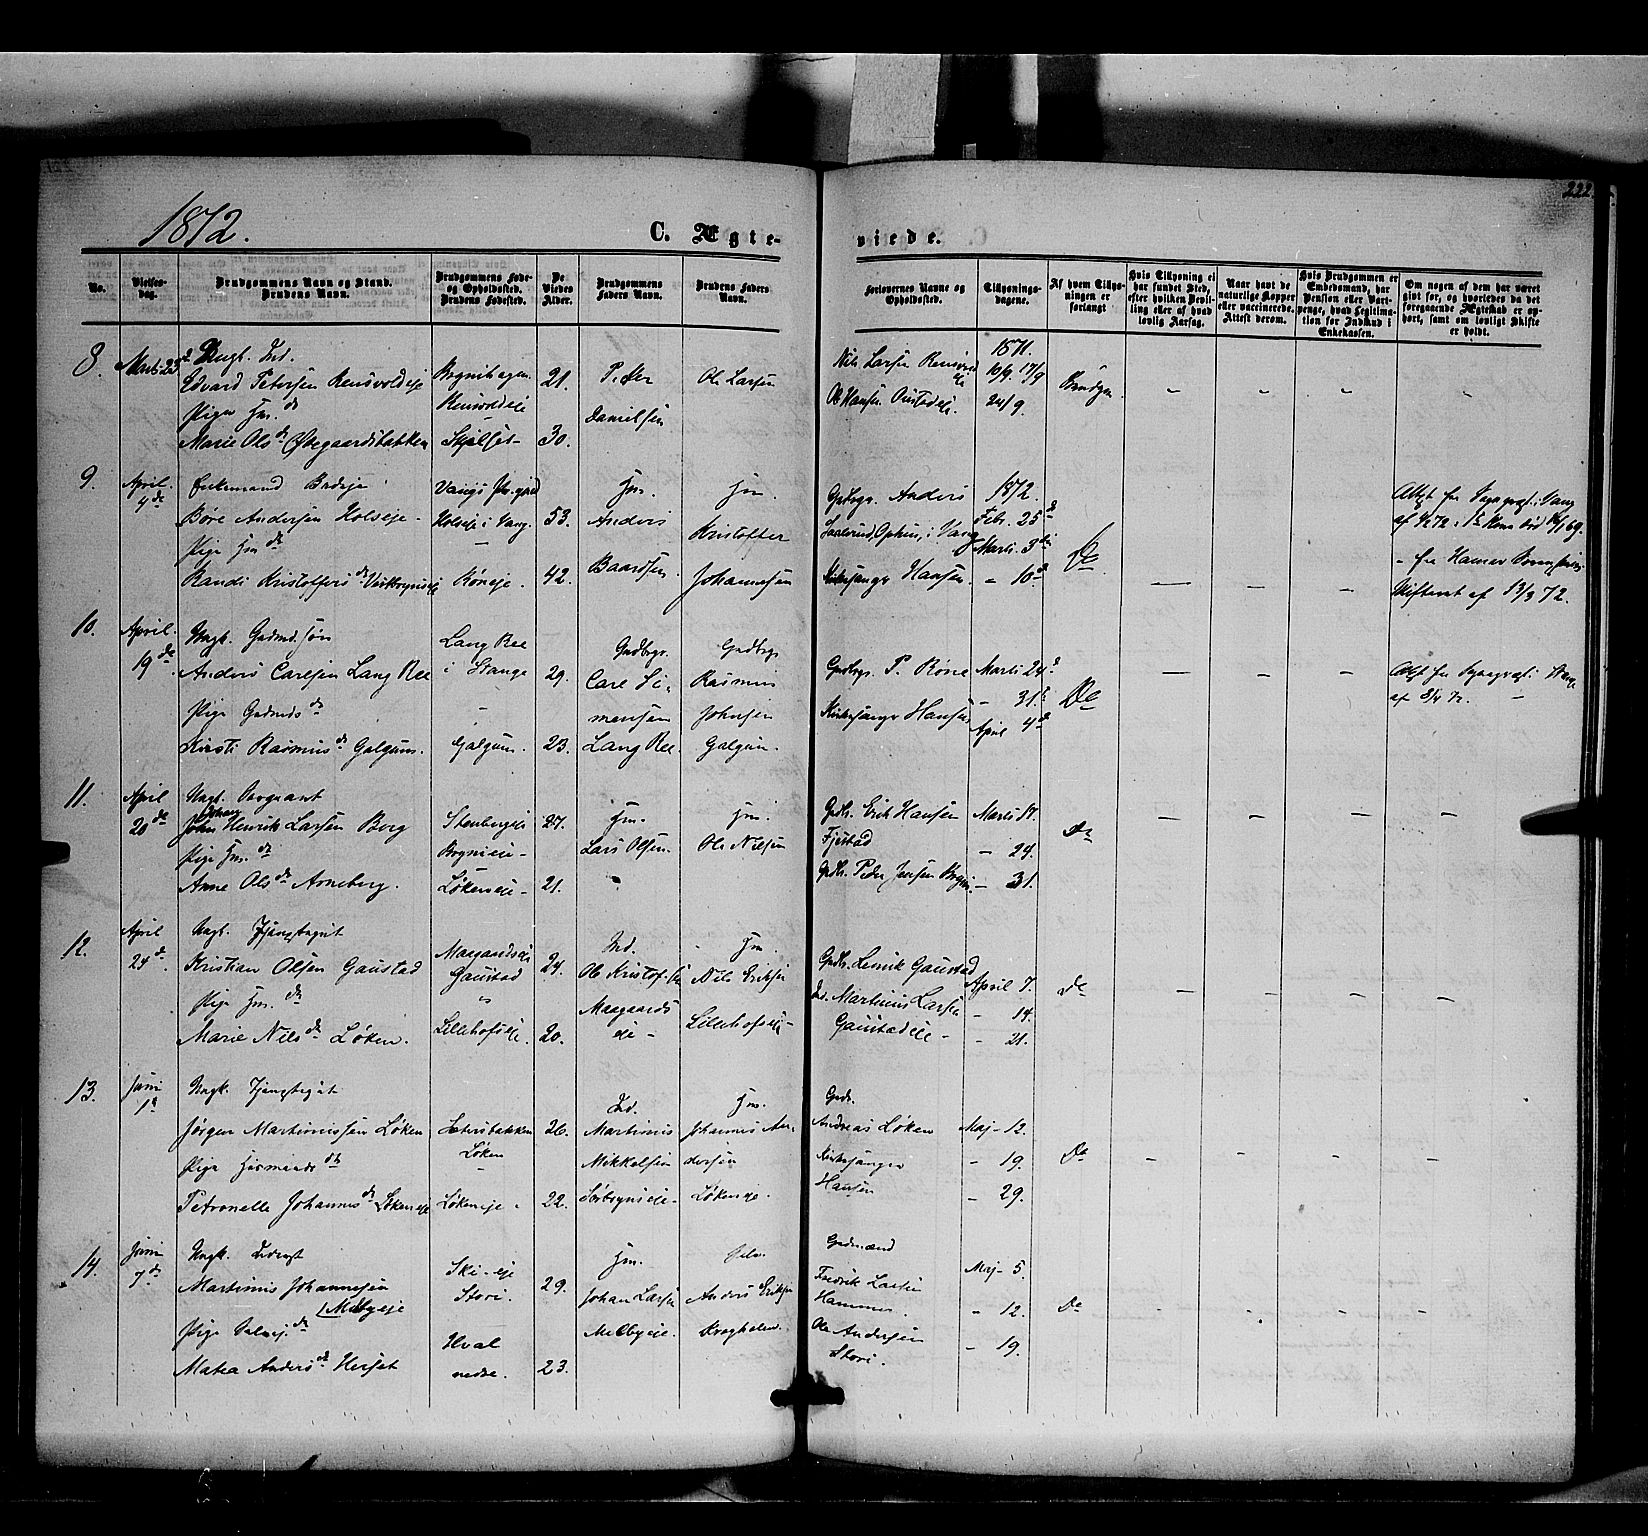 222
1872.
C. Ægte-
viede.
No.
Vielses-
dag.
Brudgommens Navn og Stand.
Brudens Navn.
Brudgommens Føde-
og Opholdssted.
Brudens Fødested.
De
Viedes
Alder.
Brudgommens
Faders Navn.
Brudens Faders
Navn.
Forlovernes Navne og
Opholdssted.
Tillysnings-
dagene.
Af hvem Tillys-
ningen er
forlangt
Hvis Tillysning ei
har fundet Sted,
efter hvilken Bevil-
ling eller af hvad
lovlig Aarsag.
Naar havt de
naturlige Kopper
eller vaccinerede.
Attest derom.
Hvis Brudgommen er
Embedsmand, har
Pension eller Vart-
penge, hvad Legitima-
tion for Indskud i
Enkekassen.
Om nogen af dem har været
gift før, og hvorledes da det
foregaaende Ægteskab er op-
hørt, samt om lovligt Skifte
er holdt.
8.
Ungk. Ind.
Edvard Petersen Rensvoldeje
Pige Hm. dr
Marie Olsdr Øvegaardsbakken
Rognihagen
Rensvoldeje
Skjelset
21.
30.
Peter
Danielsen
Ole Larsen
Nils Larsen
Ole Hansen
1871.
10/9. 17/9
24/9.
9.
April
4de
Enkemand
Børe Andersen Holseje
Pige Hm dr
Randi Kristoffersdr
Holseje i Vang.
Røneje.
53.
42.
Hm.
Anders
Baardsen.
Hm.
Kristoffer
Johannesen
Gaardbr. Anders
i Vang
Kirkesanger Hansen.
1872.
Febr. 25
Marti. 3die
- 10de
De
af 13/3 72.
10.
April.
19de
Ungk. Gadmd. søn
Anders Carlsen Lang Ree
Pige Gadmds dr
Kirsti Rasmusdr Galgum.
Lang Ree
i Stange
Galgum.
29.
23.
Gadbgr.
Carl Si-
mensen
Lang Ree
Gadbgr
Rasmus
Johnsen
Galgum.
Gadbgr. P. Røne
Kirkesanger Hansen
Marti 24
- 31
April 4de
De
11.
April
20de
Ungk. Sergeant
Johan Henrik Larsen Borg
Pige Hm. dr
Anne Olsdr Arneberg.
Stenbergeje
Rognieje
Løkenseje
27.
21.
Hm.
Lars Olsen.
Hm.
Ole Nilsen
Gadbr. Erik Hansen
Fjestad
Gadbr. Peder Jensen
Marti 17.
- 24.
- 31.
De
12.
April
24d.
Ungk. Tjenestegut
Kristian Olsen Gaustad
Pige Hm. dr
Marie Nilsdr Løken.
Maagaardseje
Gaustad
Lillehofseje.
24.
20.
Ind.
Ole Kristofsen
Maagaards
eje
Hm.
Nils Eriksen
Lillehofseje
Gadbr. Lenrik Gaustad
Ind. Martinus Larsen
Gaustadeje
April 7.
- 14.
- 21.
De
13.
Juni
1d
Ungk. Tjenestegut
Jørgen Martinussen Løken
Pige Husmands dr
Petronelle Johannesdr Løkeneje
Løken
Løkeneje
26.
22.
Ind.
Martinus
Mikkelsen
Sørbrynseje
Hm.
Johannes An-
dersen
Løkeneje.
Gadr.
Andreas Løken
Kirkesanger
Hansen
Maj 12.
- 19.
- 29.
De
14.
Juni
7de
Ungk. Inderst
Martinus Johannesen
Melbyeje
Mathea Andersdr Herset
Ski-eje
Stori.
Hval
nedre.
29.
23.
Hm.
Johan Larsen
Melbyeje.
Anders Eriksen
Gadmænd
Fredrik Larsen
Hammer
Ole Andersen
Stori.
Maj 5.
- 12.
- 19.
De